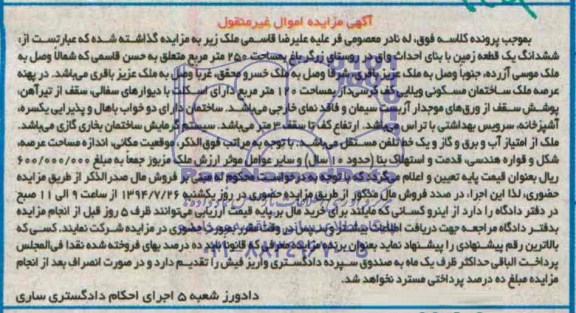 آگهی مزایده اموال غیرمنقول
بموجب پرونده کلاسه فوق، له نادر معصومی فر علیه علیرضا قاسمی ملک زیر به مزایده گذاشته شده که عبارتست از:
ششدانگ یک قطعه زمین با بنای احداث واقع در روستای زرگرباغ بمساحت ۲۵۰ متر مربع متعلق به حسن قاسمی که شمالاً وصل به
ملک موسی آزرده، جنوباً وصل به ملک عزیز باقری، شرقاً وصل به ملک خسرو محقق، غرباً وصل به ملک عزیز باقری می‌باشد. در پهنه
عرصه ملک ساختمان مسکونی ویلایی کف کرسی‌دار بمساحت ۱۲۰ متر مربع دارای اسکلت با دیوارهای سفالی، سقف از تیرآهن،
پوشش سقف از ورق‌های موجدار آزبست سیمان و فاقد نمای خارجی می‌باشد. ساختمان دارای دو خواب باهال و پذیرایی یکسره،
آشپزخانه، سرویس بهداشتی با تراس می‌باشد. ارتفاع کف تا سقف ۳ متر می‌باشد. سیستم گرمایش ساختمان بخاری گازی می‌باشد.
ملک از امتیاز آب و برق و گاز و یک خط تلفن مستقل می‌باشد. با توجه به مراتب فوق‌الذکر، موقعیت مکانی، اندازه مساحت عرصه،
شکل و قواره هندسی، قدمت و استهلاک بنا (حدود ۱۰ سال) و سایر عوامل موثر ارزش ملک مزبور جمعاً به مبلغ ۶۰۰/۰۰۰/۰۰۰
ریال بعنوان قیمت پایه تعیین و اعلام می‌گردد که با توجه به درخواست محکوم له مبنی بر فروش مال صدرالذکر از طریق مزایده
حضوری، لذا این اجرا، در صدد فروش مال مذکور از طریق مزایده حضوری در روز یکشنبه ۱۳۹۴/۷/۲۶ از ساعت ۹ الی ۱۱ صبح
در دفتر دادگاه را دارد از اینرو کسانی که مایلند برای خرید مال بر پایه قیمت ارزیابی می‌توانند ظرف ۵ روز قبل از انجام مزایده
بدفتر دادگاه مراجعه جهت دریافت اطلاعات بیشتر و بازدید در وقت مقرر بصورت حضوری در مزایده شرکت نمایند. کسی که
بالاترین رقم پیشنهادی را پیشنهاد نماید بعنوان برنده مزایده معرفی که قانوناً باید ده درصد بهای فروخته شده نقداً فی‌المجلس
پرداخت الباقی حداکثر ظرف یک ماه به صندوق سپرده دادگستری واریز فیش را تقدیم دارد و در صورت انصراف بعد از انجام
مزایده مبلغ ده درصد پرداختی مسترد نخواهد شد.
دادورز شعبه ۵ اجرای احکام دادگستری ساری